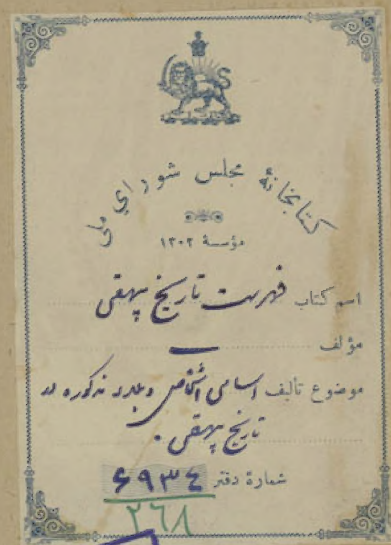 کتابخانهٔ مجلس شورای ملی
مؤسسهٔ ۱۳۰۲
اسم کتاب فهرست تاریخ بیهقی
مؤلف
موضوع تألیف اسامی اشخاص و بلاد مذکوره در
تاریخ بیهقی .
شمارهٔ دفتر ۶۹۳۴
۲۶۸